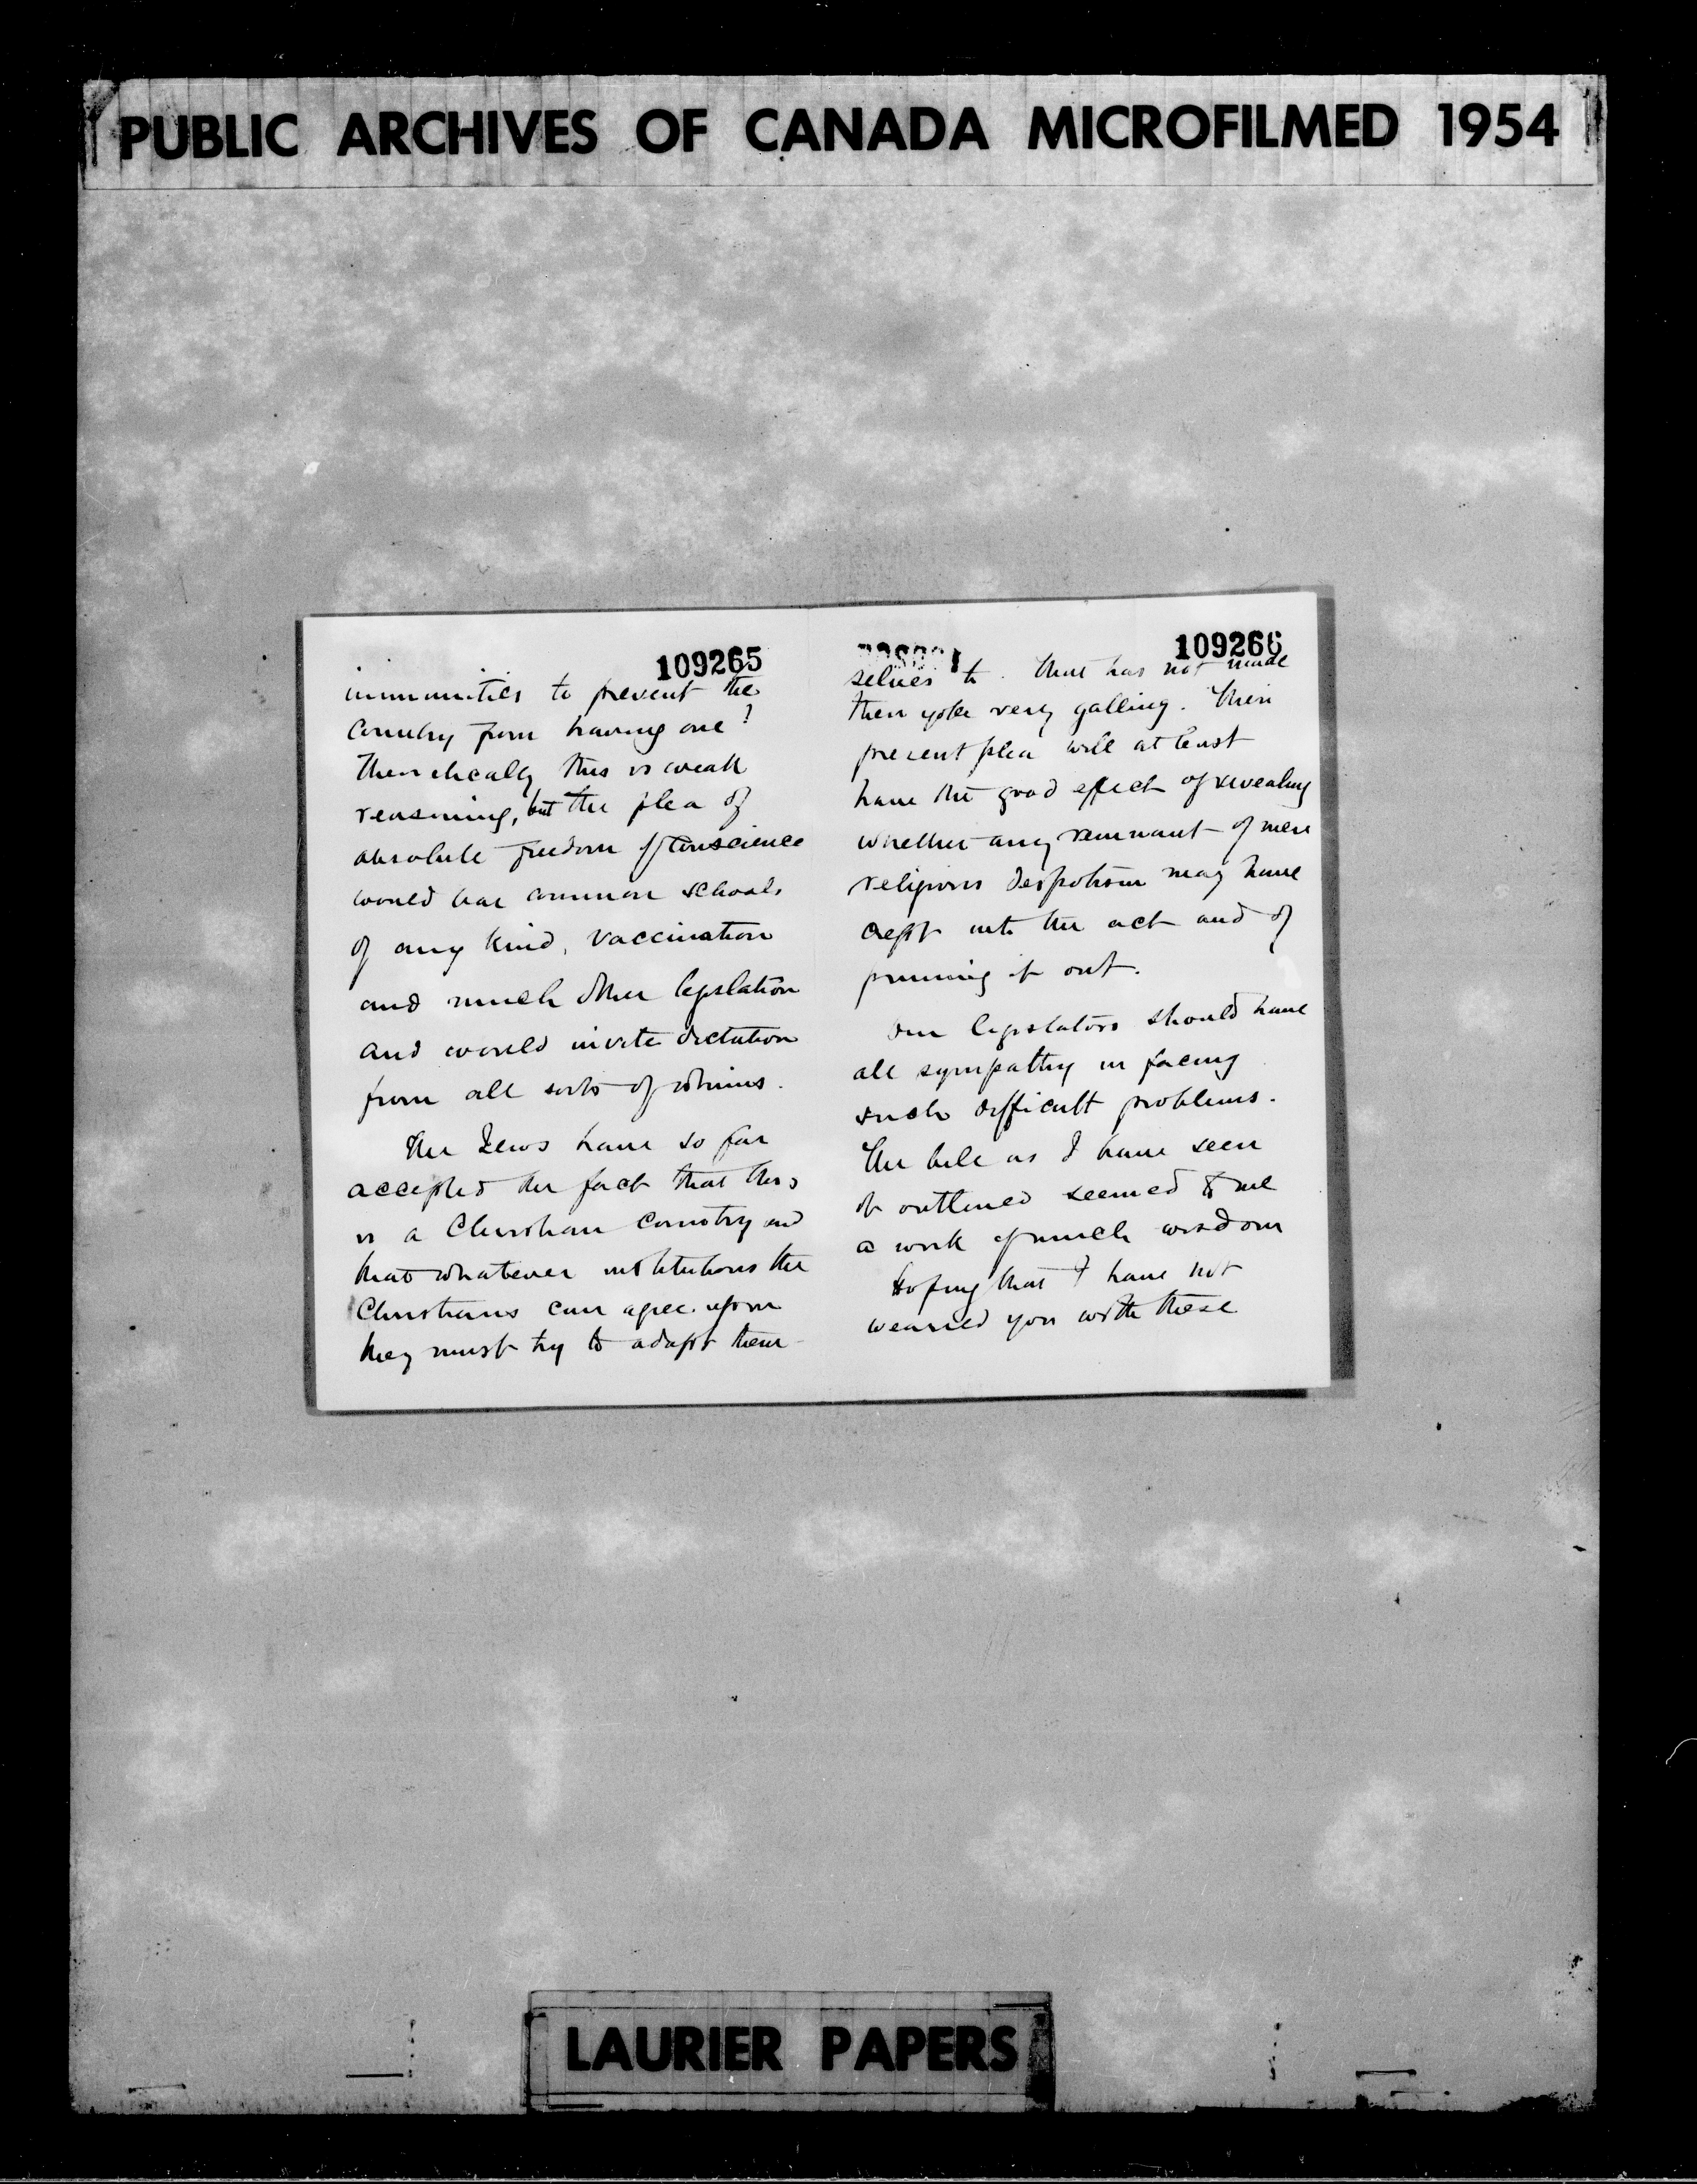 PUBLIC ARCHIVES OF CANADA MICROFILMED 1954
109265
immunities to prevent the
Country from having one?
Theoretically this is weak
reasoning, but the plea of
absolute freedom of conscience
would bar common schools
of any kind, vaccination
and much other legislation
and would invite dictation
from all sorts of whims.
The Jews have so far
accepted the fact that this
is a Christian Country and
that whatever institutions the
Christians can agree upon
they must try to adapt them-
109266
selves to. That has not made
their yoke very galling. Their
present plea will at least
have the good effect of revealing
whether any remnant of mere
religious despotism may have
crept into the act and of
pruning it out.
Our legislators should have
all sympathy in facing
such difficult problems.
The bill as I have seen
it outlined seemed to me
a work of much wisdom
Hoping that I have not
wearied you with these
LAURIER PAPERS